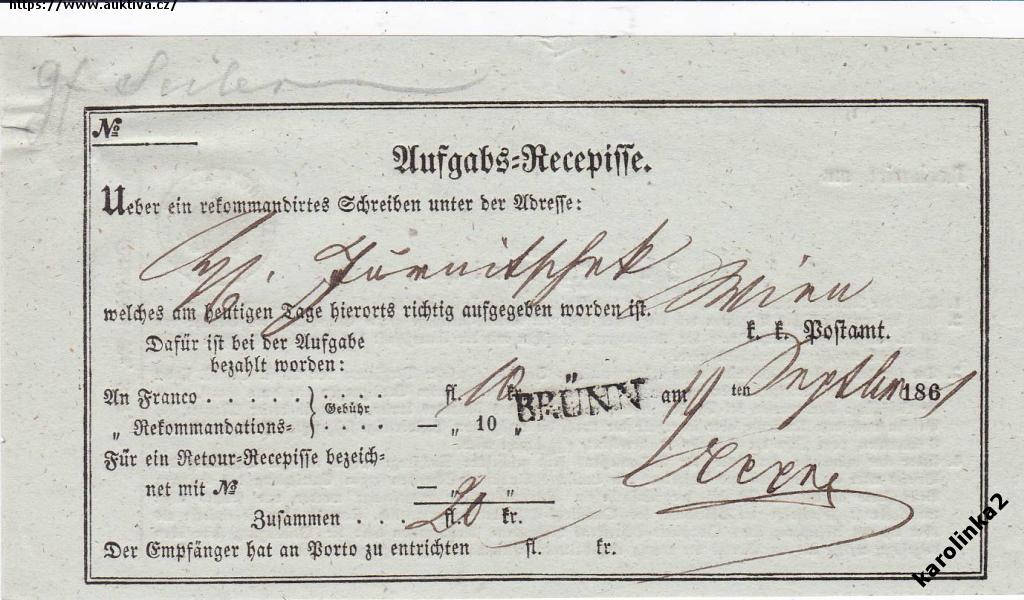 https://www.auktiva.cz/
gf Seiler
№
Aufgabs-Recepisse.
Ueber ein rekommandirtes Schreiben unter der Adresse:
Wien
welches am heutigen Tage hierorts richtig aufgegeben worden ist.
k. k. Postamt.
Dafür ist bei der Aufgabe
bezahlt worden:
An Franco . . . . . . . . . fl. 10 kr.
Gebühr
BRÜNN am 19 ten Septber 1861
„ Rekommandations- . . . . — „ 10 „
Für ein Retour-Recepisse bezeich-
net mit № — „ „
Zusammen . . . fl. 20 kr.
Der Empfänger hat an Porto zu entrichten fl. kr.
karolinka2